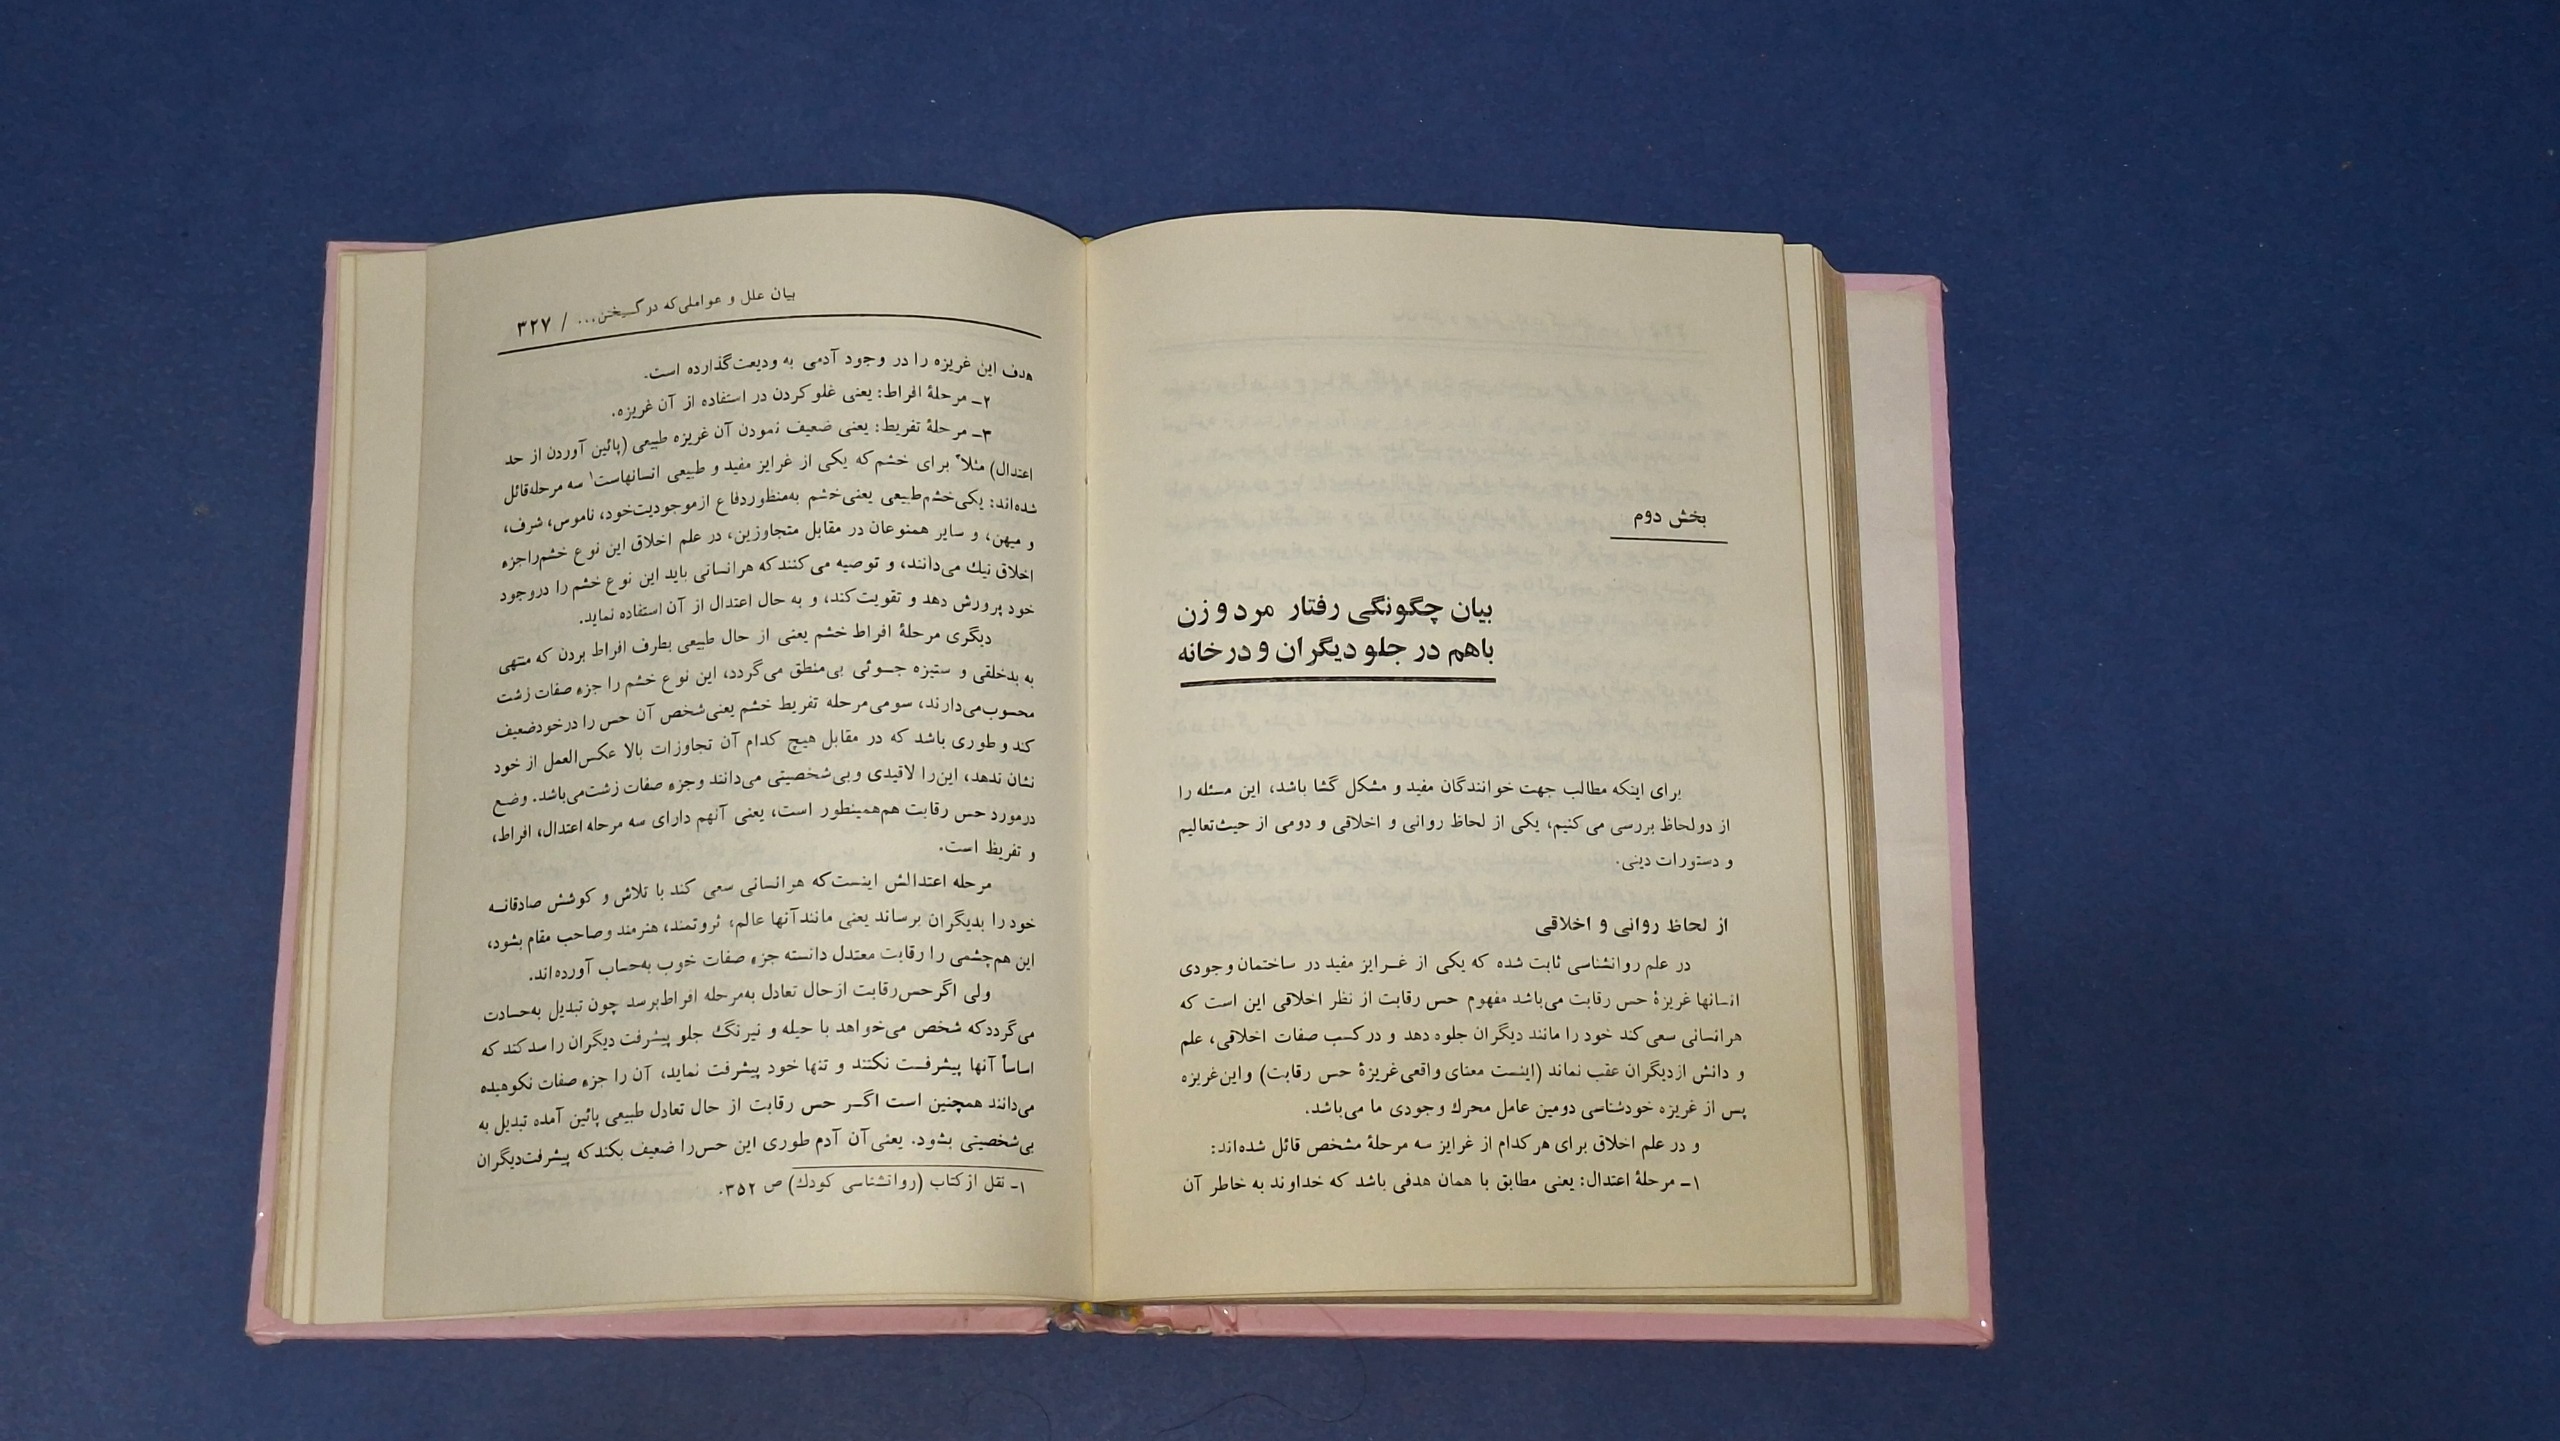 بخش دوم
بیان چگونگی رفتار مرد و زن
باهم در جلو دیگران و در خانه
برای اینکه مطالب جهت خوانندگان مفید و مشکل گشا باشد، این مسئله را
از دولحاظ بررسی می‌کنیم، یکی از لحاظ روانی و اخلاقی و دومی از حیث تعالیم
و دستورات دینی.
از لحاظ روانی و اخلاقی
در علم روانشناسی ثابت شده که یکی از غـرایز مفید در ساختمان وجودی
انسانها غریزهٔ حس رقابت می‌باشد مفهوم حس رقابت از نظر اخلاقی این است که
هرانسانی سعی کند خود را مانند دیگران جلوه دهد و درکسب صفات اخلاقی، علم
و دانش ازدیگران عقب نماند (اینست معنای واقعی غریزهٔ حس رقابت) واین غریزه
پس از غریزه خودشناسی دومین عامل محرك وجودی ما می‌باشد.
و در علم اخلاق برای هرکدام از غرایز سه مرحلهٔ مشخص قائل شده‌اند:
۱ــ مرحلهٔ اعتدال: یعنی مطابق با همان هدفی باشد که خداوند به خاطر آن
بیان علل و عواملی‌که درگسیختن... / ۳۲۷
هدف این غریزه را در وجود آدمی به ودیعت‌گذارده است.
۲ــ مرحلهٔ افراط: یعنی غلو کردن در استفاده از آن غریزه.
۳ــ مرحلهٔ تفریط: یعنی ضعیف نمودن آن غریزه طبیعی (پائین آوردن از حد
اعتدال) مثلاً برای خشم که یکی از غرایز مفید و طبیعی انسانهاست۱ سه مرحله‌قائل
شده‌اند: یکی‌خشم‌طبیعی یعنی‌خشم به‌منظوردفاع ازموجودیت‌خود، ناموس، شرف،
و میهن، و سایر همنوعان در مقابل متجاوزین، در علم اخلاق این نوع خشم‌راجزء
اخلاق نیك می‌دانند، و توصیه می‌کنند که هرانسانی باید این نوع خشم را دروجود
خود پرورش دهد و تقویت‌کند، و به حال اعتدال از آن استفاده نماید.
دیگری مرحلهٔ افراط خشم یعنی از حال طبیعی بطرف افراط بردن که منتهی
به بدخلقی و ستیزه جـوئی بی‌منطق می‌گردد، این نوع خشم را جزء صفات زشت
محسوب‌می‌دارند، سومی‌مرحله تفریط خشم یعنی‌شخص آن حس را درخودضعیف
کند و طوری باشد که در مقابل هیچ کدام آن تجاوزات بالا عکس‌العمل از خود
نشان ندهد، این‌را لاقیدی و بی‌شخصیتی می‌دانند وجزء صفات زشت‌می‌باشد. وضع
درمورد حس رقابت هم‌همینطور است، یعنی آنهم دارای سه مرحله اعتدال، افراط،
و تفریط است.
مرحله اعتدالش اینست‌که هرانسانی سعی کند با تلاش و کوشش صادقانـه
خود را بدیگران برساند یعنی مانند آنها عالم، ثروتمند، هنرمند وصاحب مقام بشود،
این هم‌چشمی را رقابت معتدل دانسته جزء صفات خوب به‌حساب آورده‌اند.
ولی اگرحس‌رقابت ازحال تعادل به‌مرحله افراط‌برسد چون تبدیل به‌حسادت
می‌گرددکه شخص می‌خواهد با حیله و نیرنگ جلو پیشرفت دیگران را سدکند که
اساساً آنها پیشرفـت نکنند و تنها خود پیشرفت نماید، آن را جزء صفات نکوهیده
می‌دانند همچنین است اگـر حس رقابت از حال تعادل طبیعی پائین آمده تبدیل به
بی‌شخصیتی بشود. یعنی‌آن آدم طوری این حس‌را ضعیف بکندکه پیشرفت‌دیگران
۱ــ نقل ازکتاب (روانشناسی کودك) ص ۳۵۲.